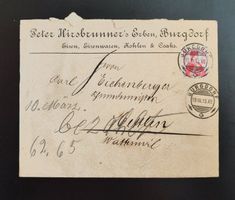 Peter Hirsbrunner's Erben, Burgdorf
Eisen, Eisenwaren, Kohlen & Coaks.
BURGDORF
Herrn
Carl Eichenberger
BURGDORF
10. März.
bez
62, 65
Wattenwil